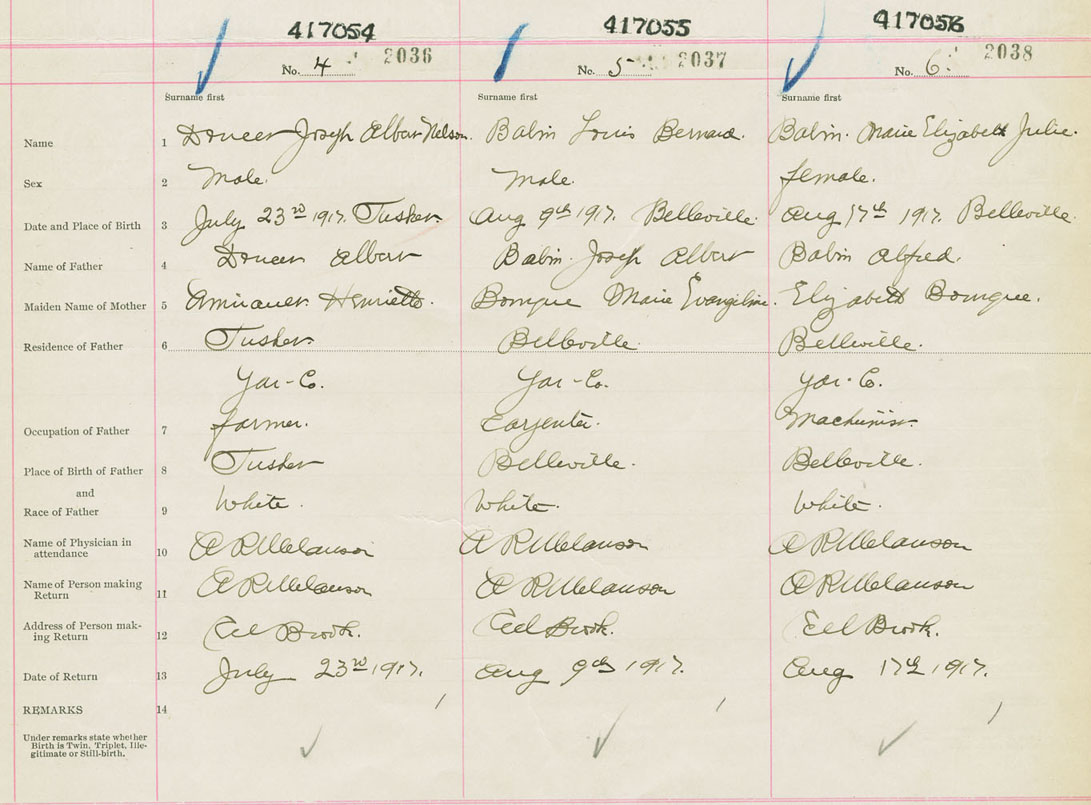 417054 417055 417056
No. 4 2036 No. 5 2037 No. 6 2038
Surname first Surname first Surname first
Name 1 Doucet Joseph Albert Nelson. Babin Louis Bernard. Babin. Marie Elizabeth Julie.
Sex 2 Male. Male. female.
Date and Place of Birth 3 July 23rd 1917. Tusket. Aug 9th 1917. Belleville. Aug 17th 1917. Belleville.
Name of Father 4 Doucet Albert Babin. Joseph Albert Babin Alfred.
Maiden Name of Mother 5 Amirault Henriette. Bourque Marie Evangeline. Elizabeth Bourque.
Residence of Father 6 Tusket. Belleville. Belleville.
Yar-Co. Yar-Co. Yar-Co.
Occupation of Father 7 farmer. Carpenter. Machinist.
Place of Birth of Father 8 Tusket Belleville. Belleville.
and
Race of Father 9 White. White. White.
Name of Physician in
attendance 10 A R Melanson A R Melanson A R Melanson
Name of Person making
Return 11 A R Melanson A R Melanson A R Melanson
Address of Person mak-
ing Return 12 Eel Brook. Eel Brook. Eel Brook.
Date of Return 13 July 23rd 1917. Aug 9th 1917. Aug 17th 1917.
REMARKS 14
Under remarks state whether
Birth is Twin, Triplet, Ille-
gitimate or Still-birth.